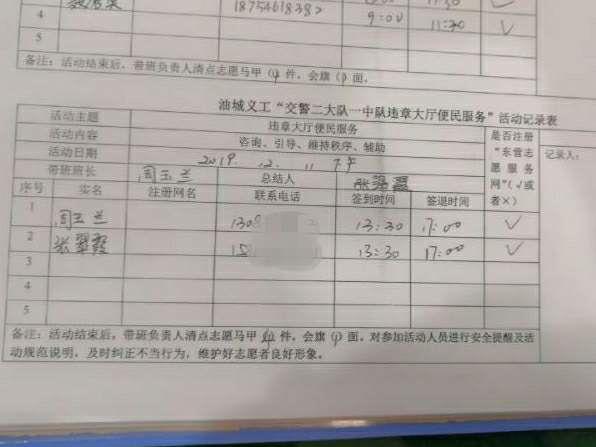 4 9:00 11:30 √
5
备注：活动结束后，带班负责人清点志愿马甲（4）件，会旗（1）面，
油城义工“交警二大队一中队违章大厅便民服务”活动记录表
活动主题 违章大厅便民服务
活动内容 咨询、引导、维持秩序、辅助
活动日期 2019.12.11 下午
带班班长 周玉兰 总结人 张翠霞
是否注册“东营志愿服务网”（√或者×）
记录人：
序号 实名 注册网名 联系电话 签到时间 签退时间
1 周玉兰 130 13:30 17:00 √
2 张翠霞 15 13:30 17:00 √
3
4
5
备注：活动结束后，带班负责人清点志愿马甲（4）件，会旗（1）面，对参加活动人员进行安全提醒及活
动规范说明，及时纠正不当行为，维护好志愿者良好形象。